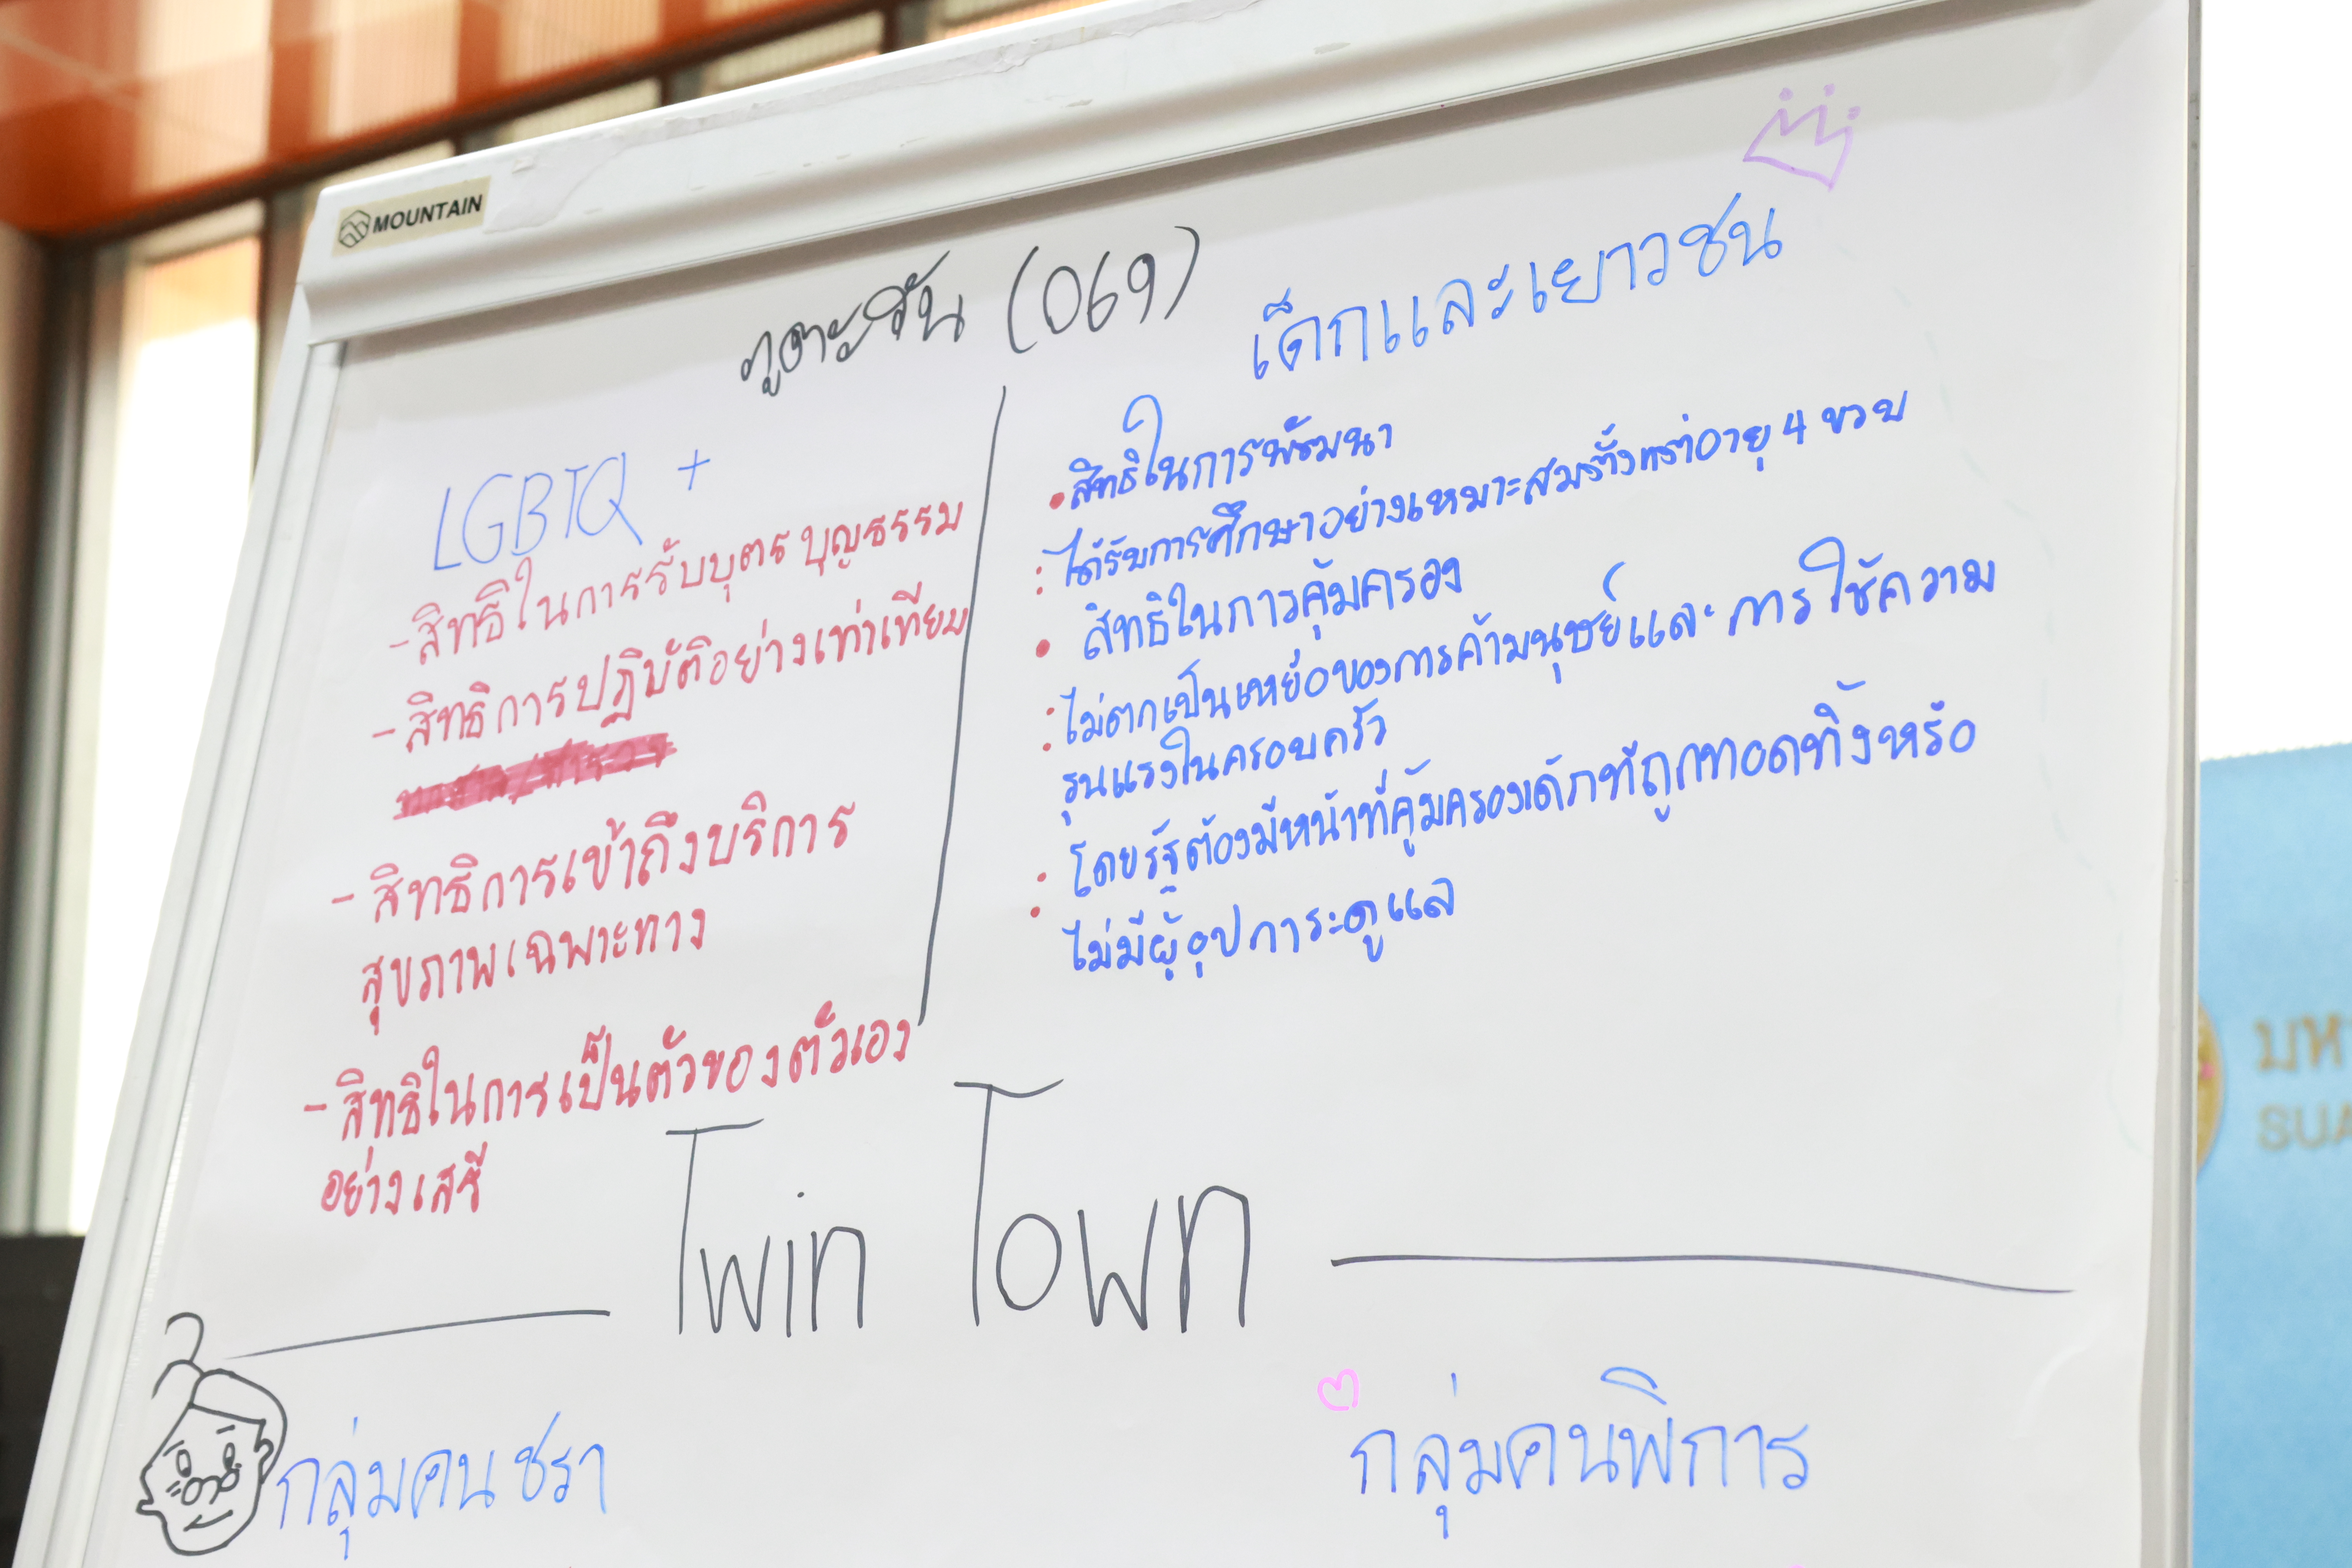 MOUNTAIN
ภูตะวัน (069)
LGBTQ +
- สิทธิในการรับบุตรบุญธรรม
- สิทธิการปฏิบัติอย่างเท่าเทียม
- สิทธิการเข้าถึงบริการ
สุขภาพเฉพาะทาง
- สิทธิในการเป็นตัวของตัวเอง
อย่างเสรี
เด็กและเยาวชน
• สิทธิในการพัฒนา
: ได้รับการศึกษาอย่างเหมาะสมตั้งแต่อายุ 4 ขวบ
• สิทธิในการคุ้มครอง
: ไม่ตกเป็นเหยื่อของการค้ามนุษย์และการใช้ความ
รุนแรงในครอบครัว
: โดยรัฐต้องมีหน้าที่คุ้มครองเด็กที่ถูกทอดทิ้งหรือ
ไม่มีผู้อุปการะดูแล
Twin Town
กลุ่มคนชรา
กลุ่มคนพิการ
มห
SUA